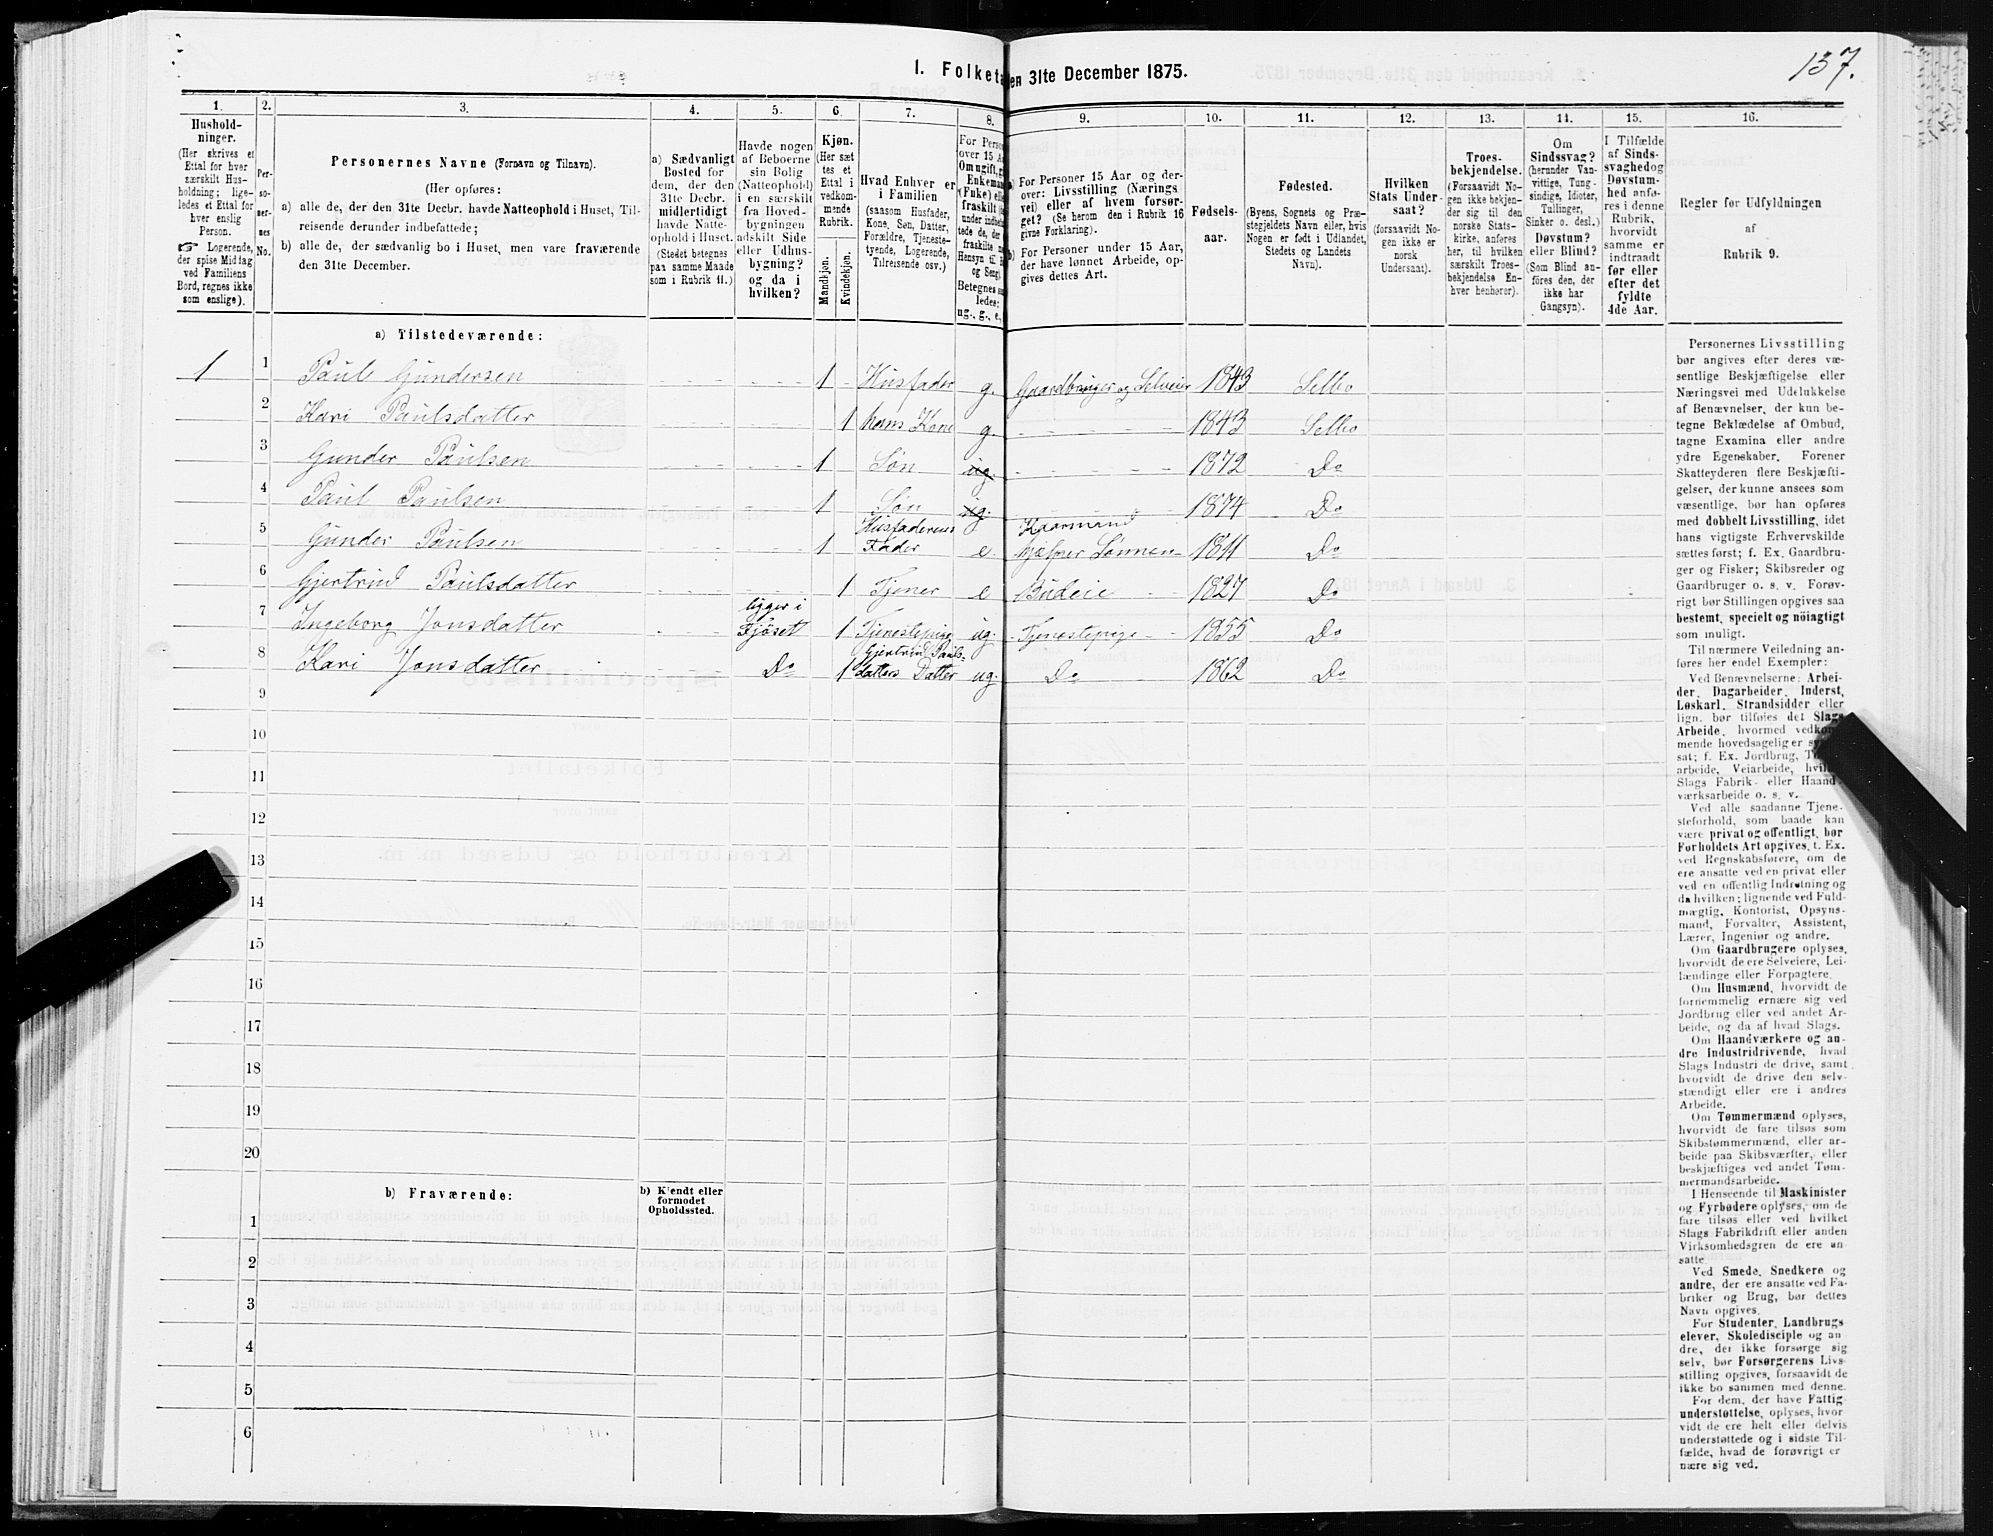 137.
I. Folketa
en 31te December 1875.
1. 2. 3. 4. 5. 6. 7. 8. 9. 10. 11. 12. 13. 14. 15. 16.
Hushold-
ninger.
(Her skrives et
Ettal for hver
særskilt Hus-
holdning; lige-
ledes et Ettal for
hver enslig
Person.
☞ Logerende,
der spise Middag
ved Familiens
Bord, regnes ikke
som enslige).
Per-
so-
ner-
nes
No.
Personernes Navne (Fornavn og Tilnavn).
(Her opføres:
a) alle de, der den 31te Decbr. havde Natteophold i Huset, Til-
reisende derunder indbefattede;
b) alle de, der sædvanlig bo i Huset, men vare fraværende
den 31te December.
a) Sædvanligt
Bosted for
dem, der den
31te Decbr.
midlertidigt
havde Natte-
ophold i Huset.
(Stedet betegnes
paa samme Maade
som i Rubrik 11.)
Havde nogen
af Beboerne
sin Bolig
(Natteophold)
i en særskilt
fra Hoved-
bygningen
adskilt Side
eller Udhus-
bygning?
og da i
hvilken?
Kjøn.
(Her sæt
tes et
Ettal i
vedkom-
mende
Rubrik.
Mandkjøn.
Kvindekjøn.
Hvad Enhver er
i Familien
(saasom Husfader,
Kone, Søn, Datter,
Forældre, Tjeneste-
tyende, Logerende,
Tilreisende osv.)
For Perso
over 15 A
Om ugift, g
Enkeman
(Enke) el
fraskilt
under indbe
tede de, der
fraskilte
Hensyn til
og Seng).
Betegnes
ledes:
ug., g., e.,
a) For Personer 15 Aar og der-
over: Livsstilling (Nærings
vei) eller af hvem forsør-
get? (Se herom den i Rubrik 16
givne Forklaring).
b) For Personer under 15 Aar,
der have lønnet Arbeide, op-
gives dettes Art.
Fødsels-
aar.
Fødested.
(Byens, Sognets og Præ-
stegjeldets Navn eller, hvis
Nogen er født i Udlandet,
Stedets og Landets
Navn).
Hvilken
Stats Under-
saat?
(foraavidt No-
gen ikke er
norsk
Undersaat).
Troes-
bekjendelse.
(Forsaavidt No-
gen ikke bekjen-
der sig til den
norske Stats-
kirke, anføres
her, til hvilken
særskilt Troes-
bekjendelse En-
hver henhører).
Om
Sindssvag?
(herunder Van-
vittige, Tung-
sindige, Idioter,
Tullinger,
Sinker o. desl.)
Døvstum?
eller Blind?
(Som Blind an-
føres den, der
ikke har
Gangsyn).
I Tilfælde
af Sinds-
svaghed og
Døvstum-
hed anfø-
res i denne
Rubrik,
hvorvidt
samme er
indtraadt
før eller
efter det
fyldte
4de Aar.
Regler for Udfyldningen
af
Rubrik 9.
a) Tilstedeværende:
1 1 Paul Gundersen 1 Husfader g. Gaardbruger og Selveier 1843 Selbo
2 Kari Paulsdatter 1 hans Kone g. 1843 Selbo
3 Gunder Paulsen 1 Søn ug. 1872 Do
4 Paul Paulsen 1 Søn ug. 1874 Do
5 Gunder Paulsen 1 Husfaderens Fader e. Kaarmand hjælper Sønnen 1811 Do
6 Gjertrud Paulsdatter 1 Tjener e Budeie 1827 Do
7 Ingeborg Jonsdatter ligger i Fjøset 1 Tjenestepige ug. Tjenestepige 1855 Do
8 Kari Jonsdatter Do 1 Gjertrud Pauls-datters Datter ug. Do 1862 Do
9
10
11
12
13
14
15
16
17
18
19
20
b) Fraværende:
b) Kjendt eller
formodet
Opholdssted.
1
2
3
4
5
6
Personernes Livsstilling
bør angives efter deres væ-
sentlige Beskjæftigelse eller
Næringsvei med Udelukkelse
af Benævnelser, der kun be-
tegne Beklædelse af Ombud,
tagne Examina eller andre
ydre Egenskaber. Forener
Skatteyderen flere Beskjæfti-
gelser, der kunne ansees som
væsentlige, bør han opføres
med dobbelt Livsstilling, idet
hans vigtigste Erhvervskilde
sættes først; f. Ex. Gaardbru-
ger og Fisker; Skibsreder og
Gaardbruger o. s. v. Forøv-
rigt bør Stillingen opgives saa
bestemt, specielt og nöiagtigt
som muligt.
Til nærmere Veiledning an-
føres her endel Exempler:
Ved Benævnelserne: Arbei-
der, Dagarbeider, Inderst,
Løskarl, Strandsidder eller
lign. bør tilføies det Slags
Arbeide, hvormed vedkom-
mende hovedsagelig er
sat; f. Ex. Jordbrug,
arbeide, Veiarbeide,
Slags Fabrik- eller Haand-
værksarbeide o. s. v.
Ved alle saadanne Tjene-
steforhold, som baade kan
være privat og offentligt, bør
Forholdets Art opgives, t. Ex.
ved Regnskabsførere, om de
ere ansatte ved en privat eller
ved en offentlig Indretning og
da hvilken; lignende ved Fuld-
mægtig, Kontorist, Opsyns-
mand, Forvalter, Assistent,
Lærer, Ingeniør og andre.
Om Gaardbrugere oplyses,
hvorvidt de ere Selveiere, Lei-
lændinge eller Forpagtere.
Om Husmænd, hvorvidt de
fornemmelig ernære sig ved
Jordbrug eller ved andet Ar-
beide, og da af hvad Slags.
Om Haandværkere og an-
dre Industridrivende, hvad
Slags Industri de drive, samt
hvorvidt de drive den selv-
stændigt eller ere i andres
Arbeide.
Om Tømmermænd oplyses,
hvorvidt de fare tilsøs som
Skibstømmermænd, eller ar-
beide paa Skibsværfter, eller
beskjæftiges ved andet Tøm-
mermandsarbeide.
I Henseende til Maskinister
og Fyrbødere oplyses, om de
fare tilsøs eller ved hvilket
Slags Fabrikdrift eller anden
Virksomhedsgren de ere an-
satte.
Ved Smede, Snedkere og
andre, der ere ansatte ved Fa-
briker og Brug, bør dettes
Navn opgives.
For Studenter, Landbrugs
elever, Skoledisciple og an-
dre, der ikke forsørge sig
selv, bør Forsørgerens Livs-
stilling opgives, forsaavidt de
ikke bo sammen med denne.
For dem, der have Fattig-
understøttelse, oplyses, hvor
vidt de ere helt eller delvis
understøttede og i sidste Til-
fælde, hvad de forøvrigt er
nære sig ved.